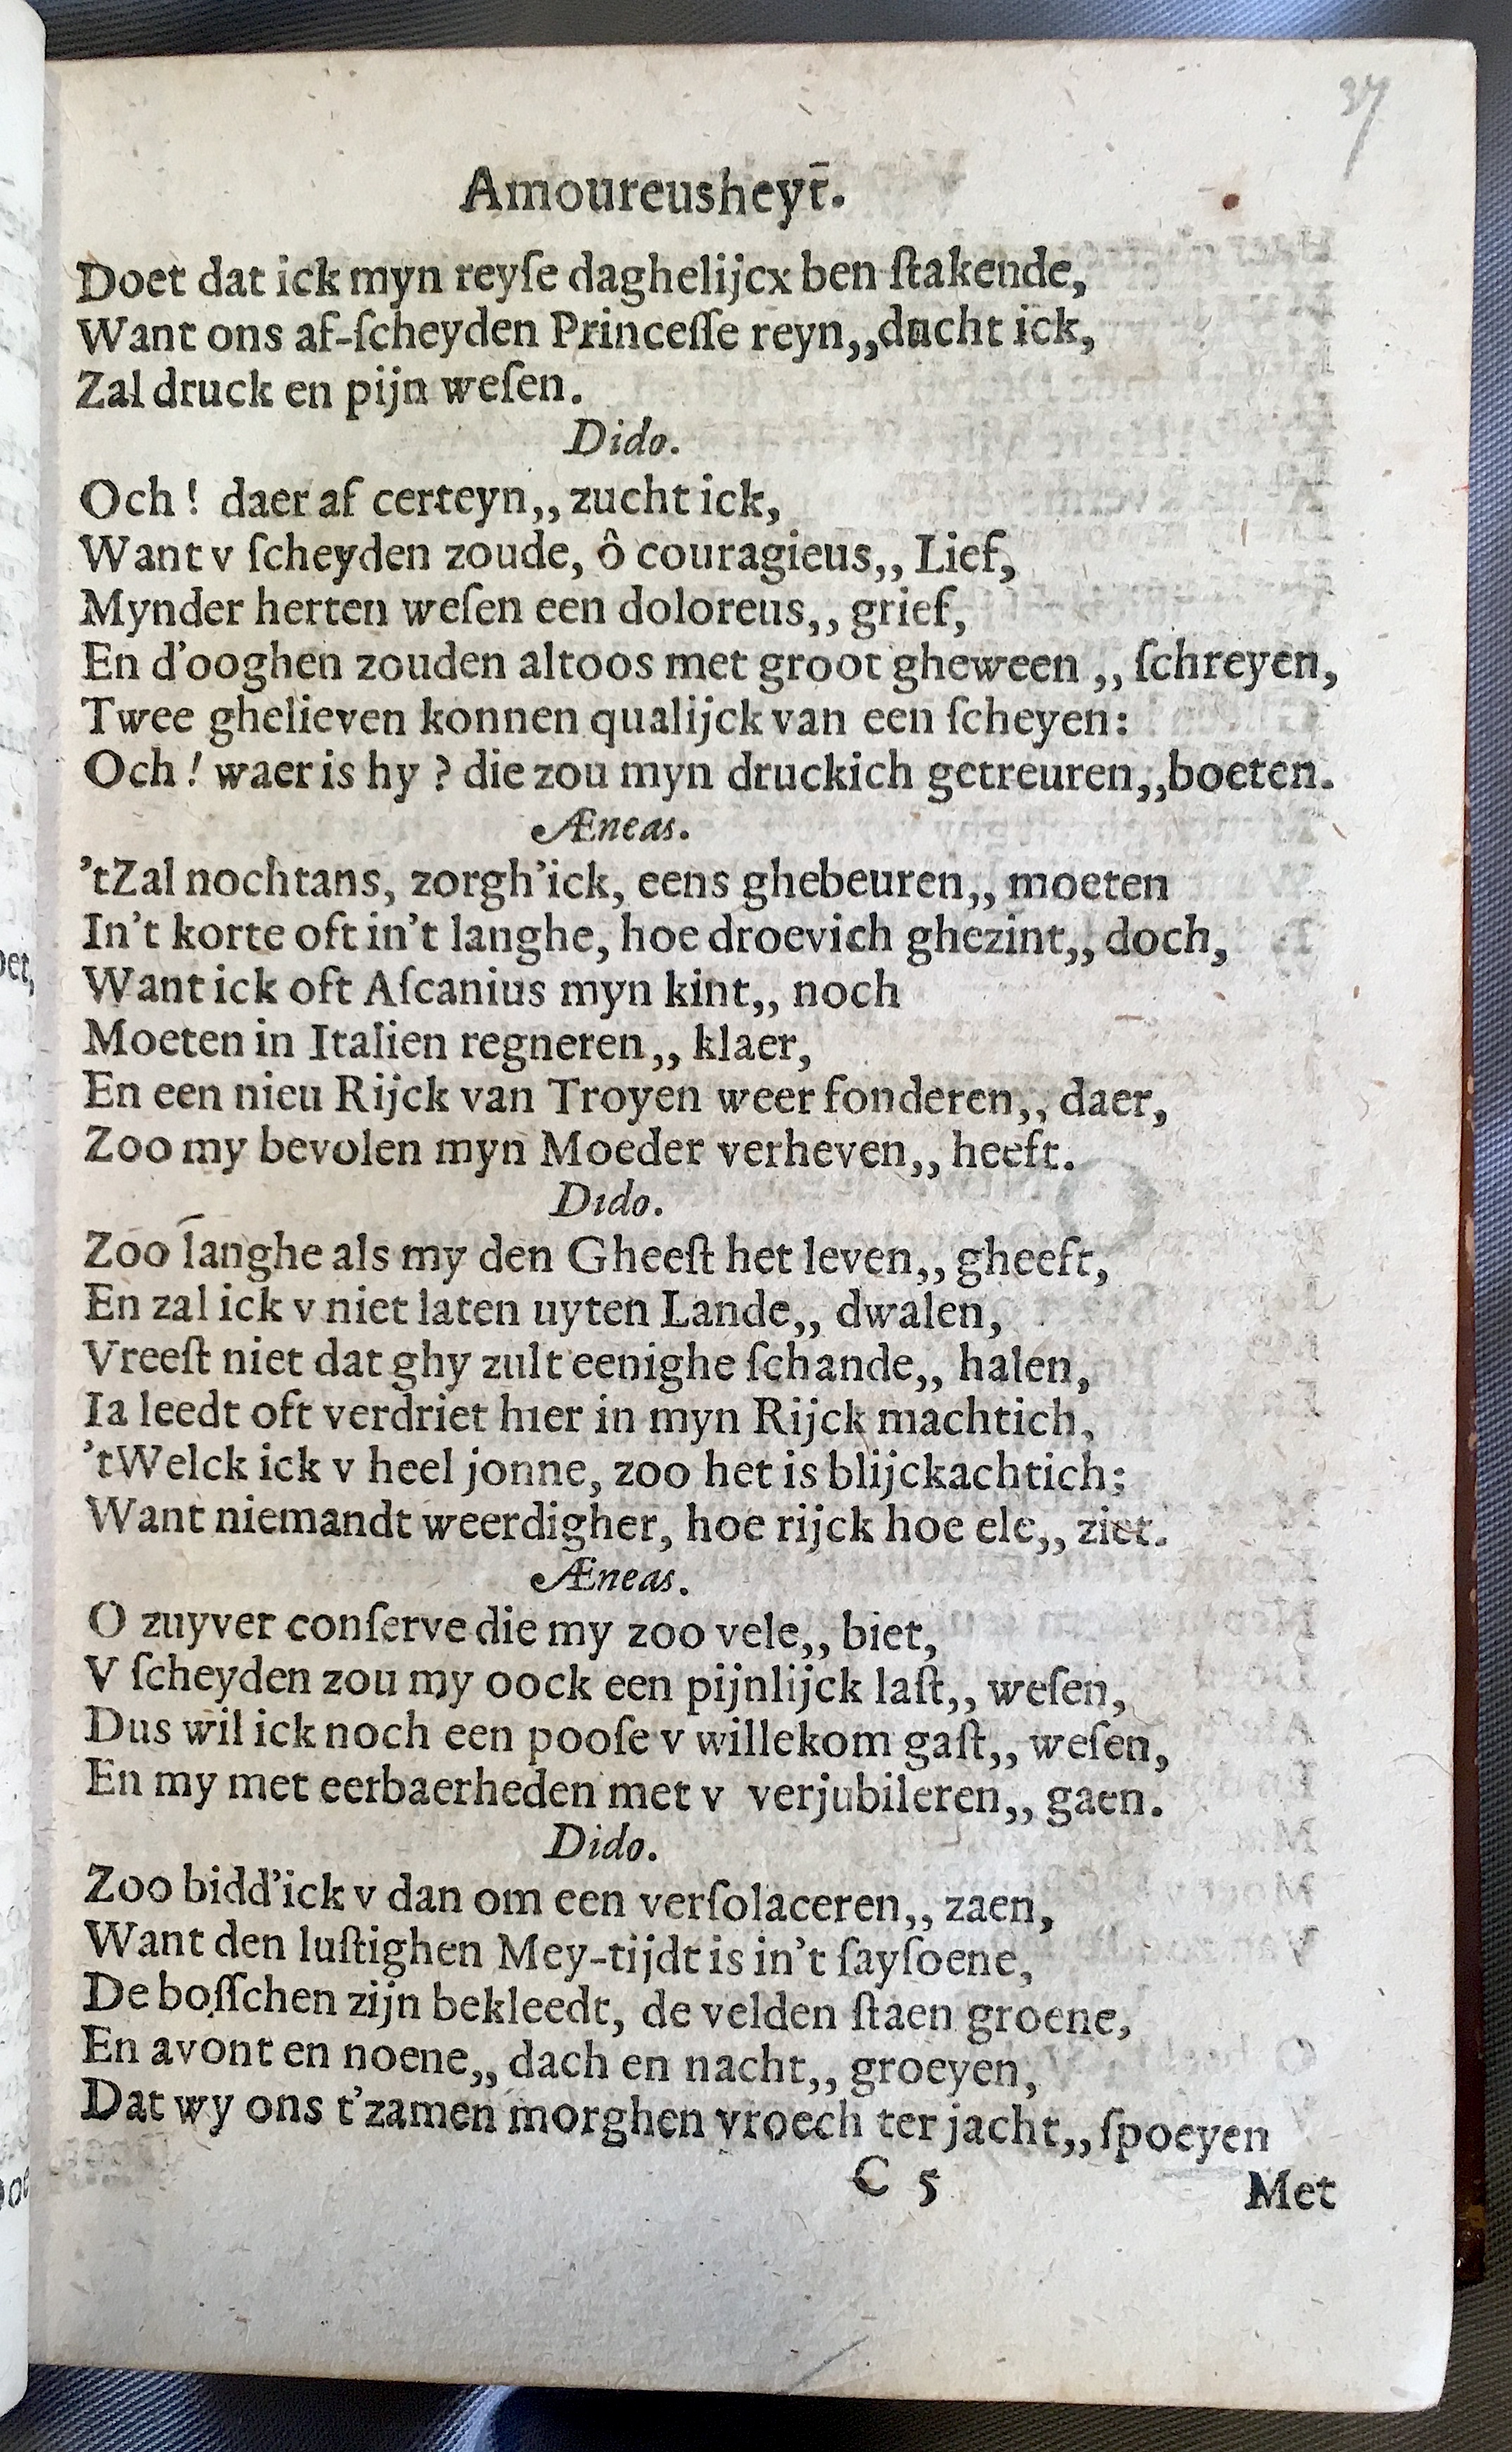 37
Amoureusheyt̄.
Doet dat ick myn reyſe daghelijcx ben ſtakende,
Want ons af-ſcheyden Princeſſe reyn,,ducht ick,
Zal druck en pijn weſen.
Dido.
Och! daer af certeyn,, zucht ick,
Want v ſcheyden zoude, ô couragieus,, Lief,
Mynder herten weſen een doloreus,, grief,
En d'ooghen zouden altoos met groot gheween,, ſchreyen,
Twee ghelieven konnen qualijck van een ſcheyen:
Och! waer is hy? die zou myn druckich getreuren,,boeten.
Æneas.
'tZal nochtans, zorgh'ick, eens ghebeuren,, moeten
In't korte oft in't langhe, hoe droevich ghezint,, doch,
Want ick oft Aſcanius myn kint,, noch
Moeten in Italien regneren,, klaer,
En een nieu Rijck van Troyen weer fonderen,, daer,
Zoo my bevolen myn Moeder verheven,, heeft.
Dido.
Zoo langhe als my den Gheeſt het leven,, gheeft,
En zal ick v niet laten uyten Lande,, dwalen,
Vreeſt niet dat ghy zult eenighe ſchande,, halen,
Ia leedt oft verdriet hier in myn Rijck machtich,
'tWelck ick v heel jonne, zoo het is blijckachtich:
Want niemandt weerdigher, hoe rijck hoe ele,, ziet.
Æneas.
O zuyver conſerve die my zoo vele,, biet,
V ſcheyden zou my oock een pijnlijck laſt,, weſen,
Dus wil ick noch een pooſe v willekom gaſt,, weſen,
En my met eerbaerheden met v verjubileren,, gaen.
Dido.
Zoo bidd'ick v dan om een verſolaceren,, zaen,
Want den luſtighen Mey-tijdt is in't ſayſoene,
De boſſchen zijn bekleedt, de velden ſtaen groene,
En avont en noene,, dach en nacht,, groeyen,
Dat wy ons t'zamen morghen vroech ter jacht,, ſpoeyen
C 5 Met